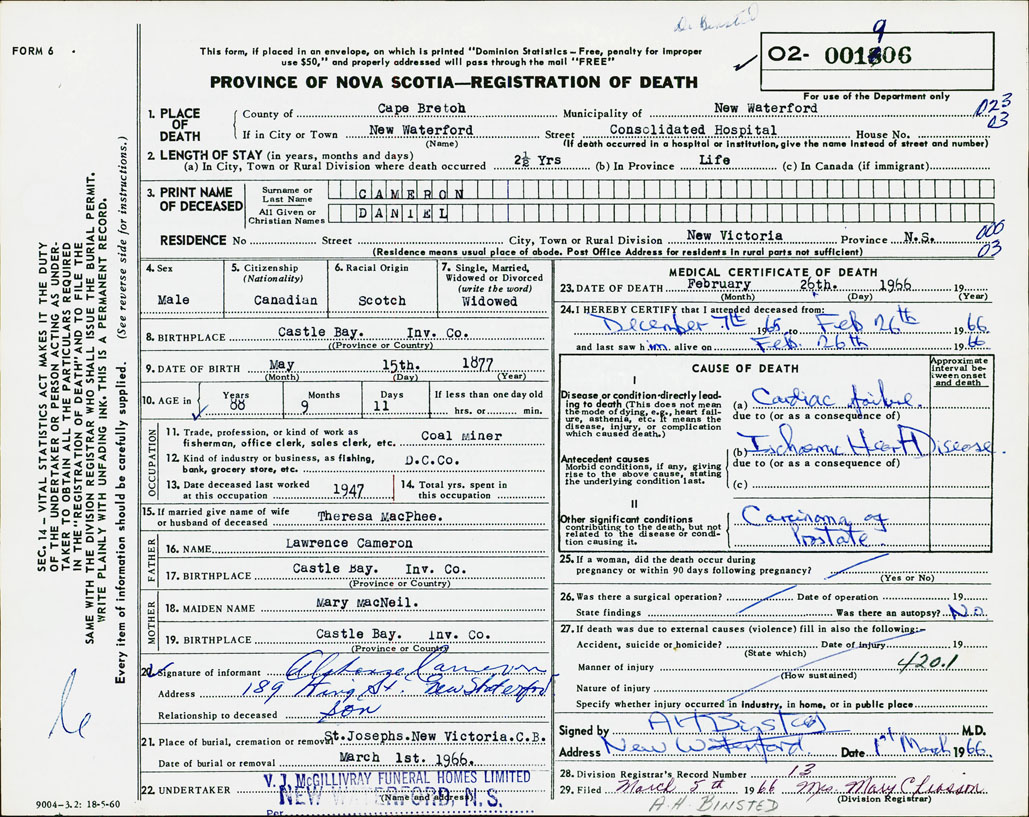 Dr Binsted
FORM 6
This form, if placed in an envelope, on which is printed "Dominion Statistics – Free, penalty for improper
use $50," and properly addressed will pass through the mail "FREE"
O2- 001806
9
PROVINCE OF NOVA SCOTIA—REGISTRATION OF DEATH
For use of the Department only
1. PLACE OF DEATH
County of Cape Breton Municipality of New Waterford
023
03
If in City or Town New Waterford Street Consolidated Hospital House No.
(Name) (If death occurred in a hospital or institution, give the name instead of street and number)
2. LENGTH OF STAY (in years, months and days)
(a) In City, Town or Rural Division where death occurred 2½ Yrs (b) In Province Life (c) In Canada (if immigrant)
3. PRINT NAME OF DECEASED
Surname or Last Name CAMERON
All Given or Christian Names DANIEL
RESIDENCE No Street City, Town or Rural Division New Victoria Province N.S.
000
03
(Residence means usual place of abode. Post Office Address for residents in rural parts not sufficient)
4. Sex
Male
5. Citizenship
(Nationality)
Canadian
6. Racial Origin
Scotch
7. Single, Married,
Widowed or Divorced
(write the word)
Widowed
8. BIRTHPLACE Castle Bay. Inv. Co.
((Province or Country)
9. DATE OF BIRTH May 15th. 1877
(Month) (Day) (Year)
10. AGE in Years Months Days If less than one day old
88 9 11 hrs. or min.
OCCUPATION
11. Trade, profession, or kind of work as
fisherman, office clerk, sales clerk, etc. Coal Miner
12. Kind of industry or business, as fishing,
bank, grocery store, etc. D.C.Co.
13. Date deceased last worked
at this occupation 1947
14. Total yrs. spent in
this occupation
15. If married give name of wife
or husband of deceased Theresa MacPhee.
FATHER
16. NAME Lawrence Cameron
17. BIRTHPLACE Castle Bay. Inv. Co.
(Province or Country)
MOTHER
18. MAIDEN NAME Mary MacNeil.
19. BIRTHPLACE Castle Bay. Inv. Co.
(Province or Country)
20. Signature of informant Alphonse Cameron
Address 189 King St. New Waterford
Relationship to deceased Son
21. Place of burial, cremation or removal St.Josephs.New Victoria.C.B.
Date of burial or removal March 1st. 1966.
22. UNDERTAKER
(Name and address)
V. J. McGILLIVRAY FUNERAL HOMES LIMITED
NEW WATERFORD, N.S.
Per
MEDICAL CERTIFICATE OF DEATH
23. DATE OF DEATH February 26th. 1966 19
(Month) (Day) (Year)
24. I HEREBY CERTIFY that I attended deceased from:
December 7th 1965 to Feb 26th 1966
and last saw him alive on Feb. 26th 1966
CAUSE OF DEATH
Approximate interval between onset and death
I
Disease or condition directly leading to death (This does not mean the mode of dying, e.g., heart failure, asthenia, etc. It means the disease, injury, or complication which caused death.)
(a) Cardiac failure.
due to (or as a consequence of)
(b) Ischaemic Heart Disease.
Antecedent causes
Morbid conditions, if any, giving rise to the above cause, stating the underlying condition last.
due to (or as a consequence of)
(c)
II
Other significant conditions
contributing to the death, but not related to the disease or condition causing it.
Carcinoma of
Prostate.
25. If a woman, did the death occur during
pregnancy or within 90 days following pregnancy?
(Yes or No)
26. Was there a surgical operation? Date of operation 19
State findings Was there an autopsy? No.
27. If death was due to external causes (violence) fill in also the following:–
Accident, suicide or homicide? Date of injury 19
(State which)
Manner of injury 420.1
(How sustained)
Nature of injury
Specify whether injury occurred in industry, in home, or in public place
Signed by A H Binsted M.D.
Address New Waterford. Date 1st March 1966.
28. Division Registrar's Record Number 13
29. Filed March 5th 1966 Mrs. Mary Chiasson
(Division Registrar)
A.H. BINSTED
SEC. 14 – VITAL STATISTICS ACT MAKES IT THE DUTY
OF THE UNDERTAKER OR PERSON ACTING AS UNDER-
TAKER TO OBTAIN ALL THE PARTICULARS REQUIRED
IN THE "REGISTRATION OF DEATH" AND TO FILE THE
SAME WITH THE DIVISION REGISTRAR WHO SHALL ISSUE THE BURIAL PERMIT.
WRITE PLAINLY WITH UNFADING INK. THIS IS A PERMANENT RECORD.
Every item of information should be carefully supplied. (See reverse side for instructions.)
9004-3.2: 18-5-60